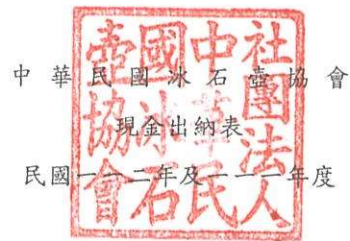 中華民國冰石壺協會
現金出納表
民國一一二年及一一一年度
社團法人
中華民
國冰石
壺協會